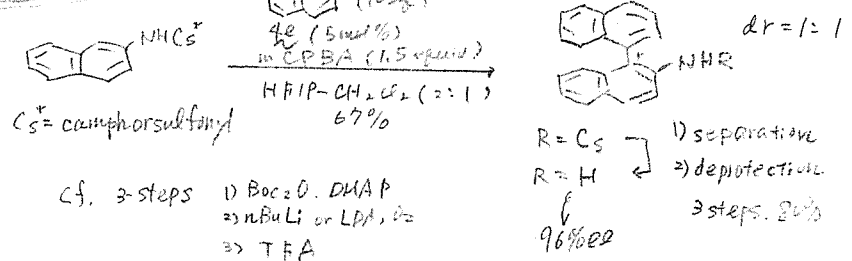 (10 eq)
4e (5 mol%)
NHCs*
mCPBA (1.5 equiv)
HFIP-CH2Cl2 (2:1)
67%
Cs* = camphorsulfonyl
dr = 1:1
NHR
R = Cs
R = H
1) separation
2) deprotection
3 steps. 80%
96% ee
cf. 3-steps
1) Boc2O. DMAP
2) nBuLi or LDA, O2
3) TFA